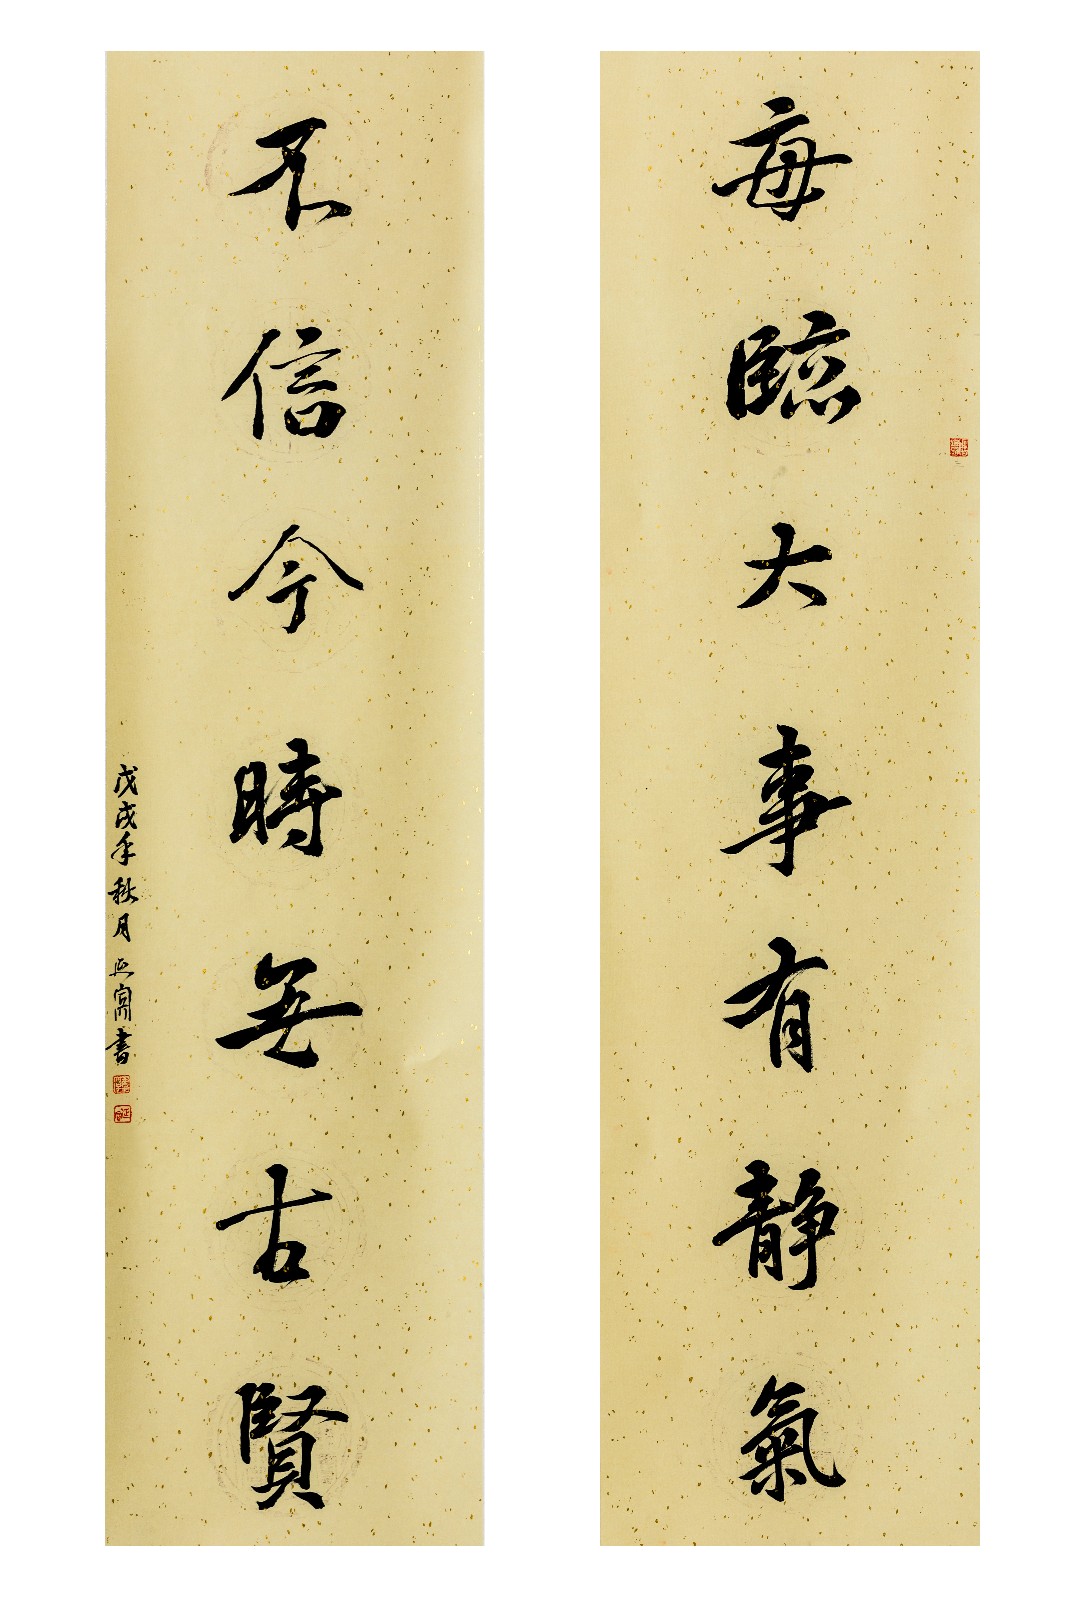 每臨大事有静氣
不信今時無古賢
戊戌年秋月
書